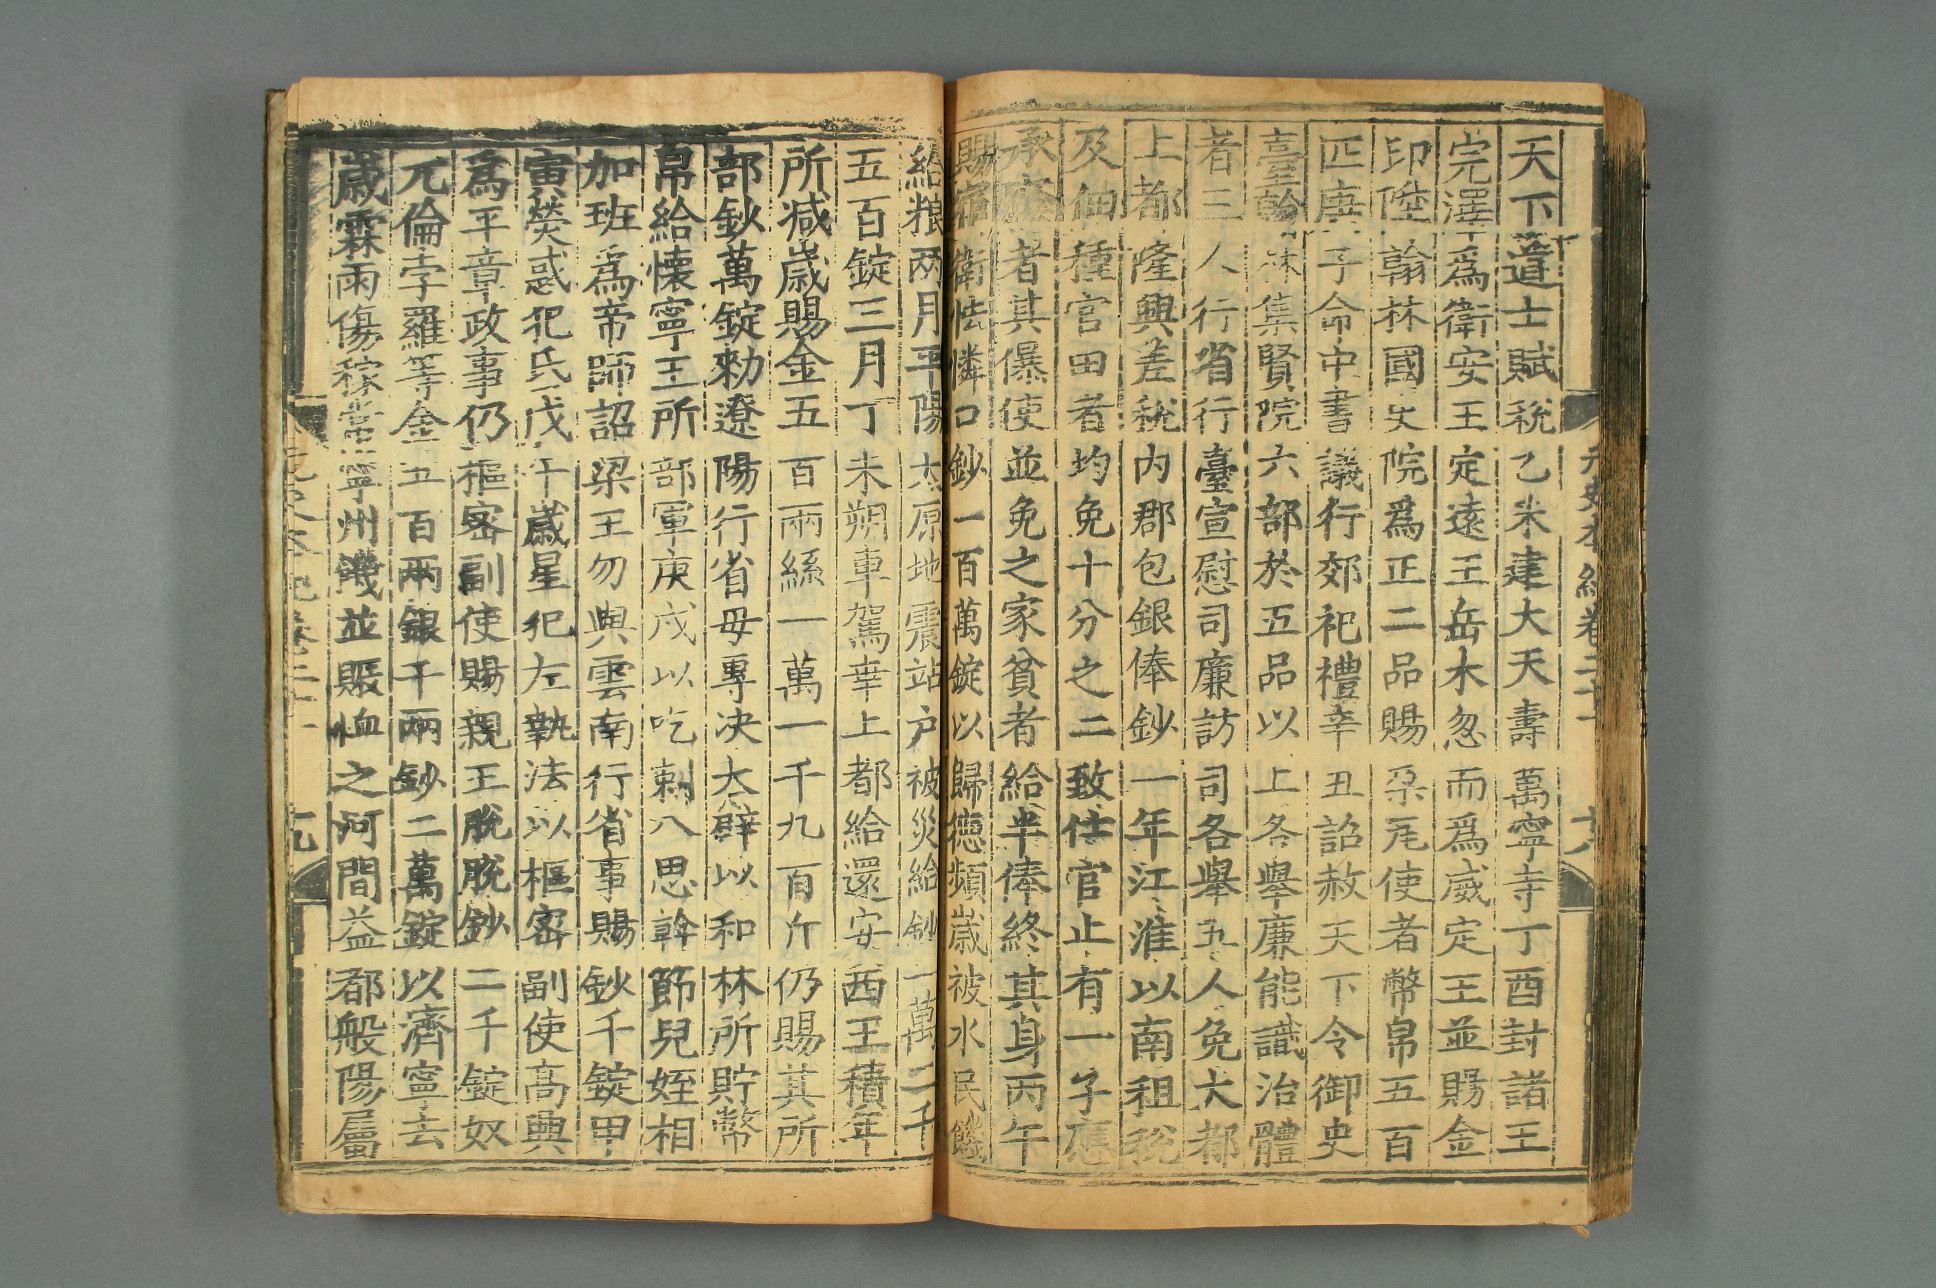 天下道士賦稅乙未建大天壽萬寧寺丁酉封諸王
完澤為衛安王定遠王岳木忽而為威定王並賜金
印陞翰林國史院為正二品賜朶瓦使者幣帛五百
匹庚子命中書議行郊祀禮辛丑詔赦天下令御史
臺翰林集賢院六部於五品以上各舉廉能識治體
者三人行省行臺宣慰司廉訪司各舉五人免大都
上都隆興差稅內郡包銀俸鈔一年江淮以南租稅
及佃種官田者均免十分之二致仕官止有一子應
承廕者其傔使並免之家貧者給半俸終其身丙午
賜宿衛怯憐口鈔一百萬錠以歸德頻歲被水民饑
給粮兩月平陽太原地震站户被災給鈔一萬二千
五百錠三月丁未朔車駕幸上都給還安西王積年
所减歲賜金五百兩絲一萬一千九百斤仍賜其所
部鈔萬錠勑遼陽行省毋專决大辟以和林所貯幣
帛給懷寧王所部軍庚戌以吃剌八思幹節兒姪相
加班為帝師詔梁王勿與雲南行省事賜鈔千錠甲
寅熒惑犯氐戊午歲星犯左執法以樞密副使高興
為平章政事仍樞密副使賜親王脫脫鈔二千錠奴
兀倫孛羅等金五百兩銀千兩鈔二萬錠以濟寧去
歲霖雨傷稼常寧州饑並賑恤之河間益都般陽屬